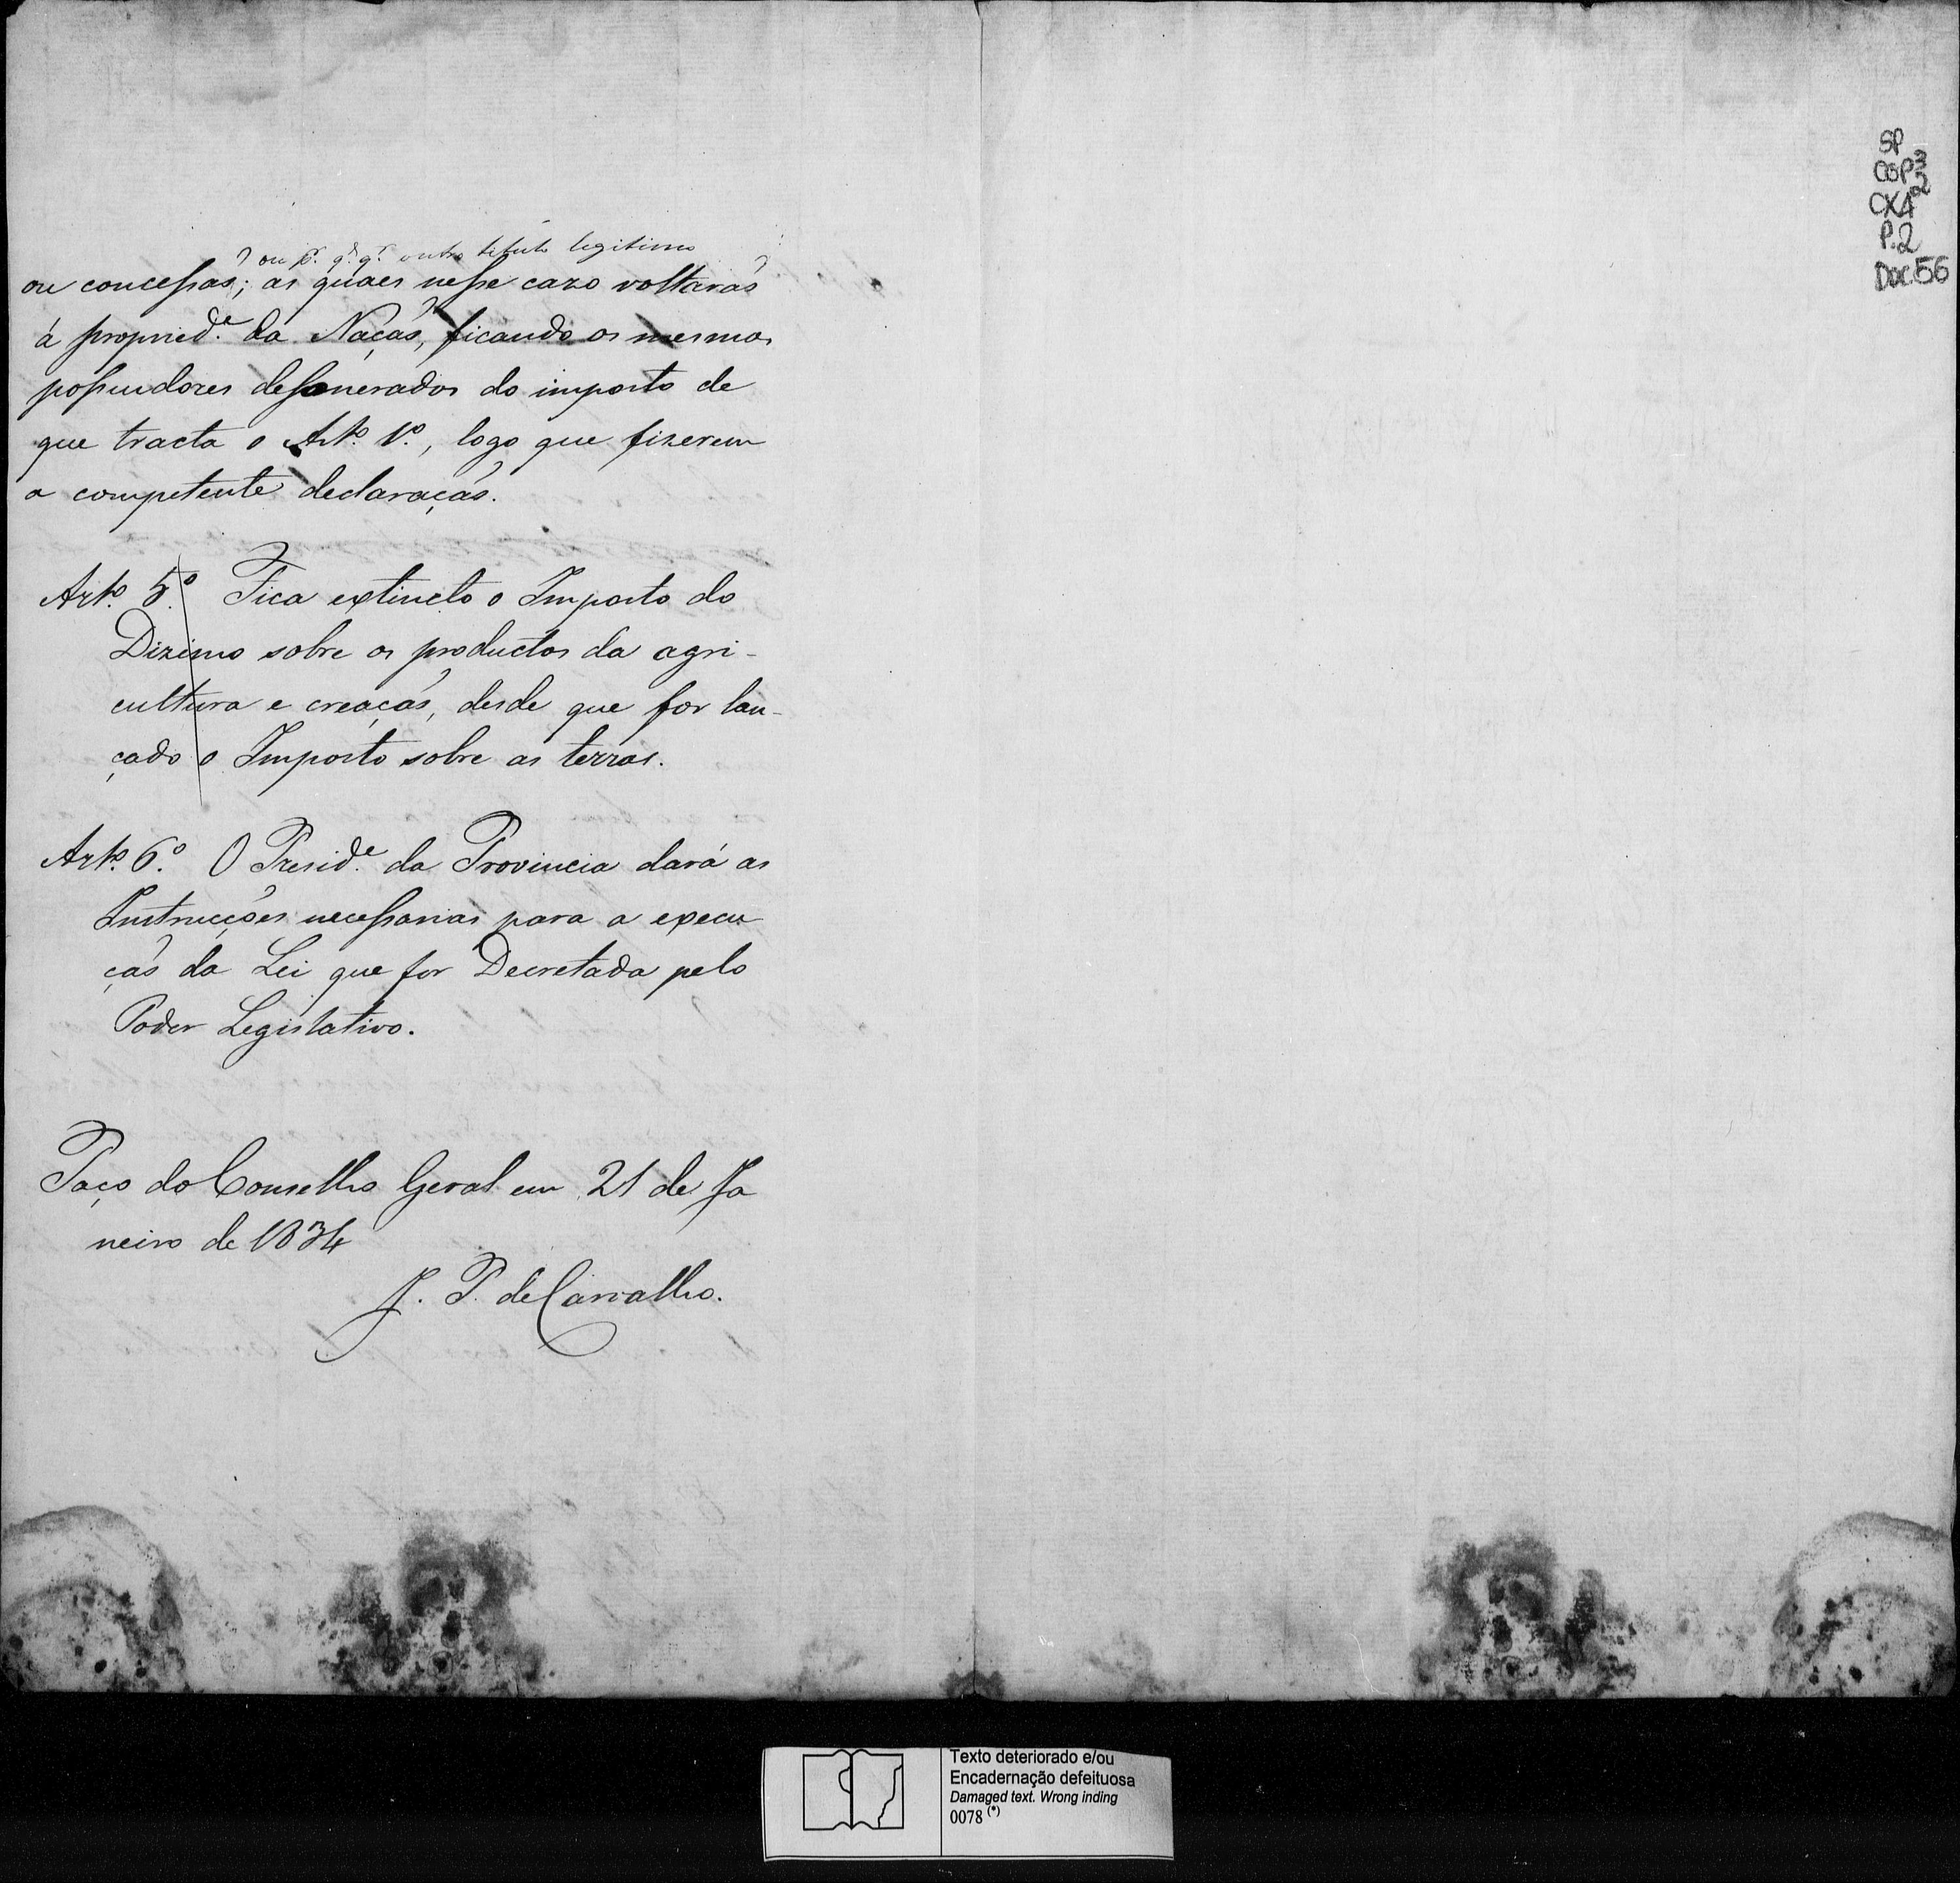 ou pr. qr. qr. outro titulo legitimo
ou concessaõ; as quaes nesse cazo voltaraõ
á propried.e da Naçaõ, ficando os mesmos
possuidores desonerados do imposto de
que tracta o Art.º 1º, logo que fizerem
a competente declaraçaõ.
Art.º 5.º Fica extincto o Imposto do
Dizimo sobre os productos da agri-
cultura e creaçaõ, desde que for lan-
çado o Imposto sobre as terras.
Art.º 6.º O Presid.e da Provincia dará as
Instrucções necessarias para a execu
çaõ da Lei que for Decretada pelo
Poder Legislativo.
Paço do Conselho Geral em 21 de Ja
neiro de 1834
J. P. de Carvalho.
SP
CGP3
CX42
P.2
Doc56
Texto deteriorado e/ou
Encadernação defeituosa
Damaged text. Wrong inding
0078 (*)